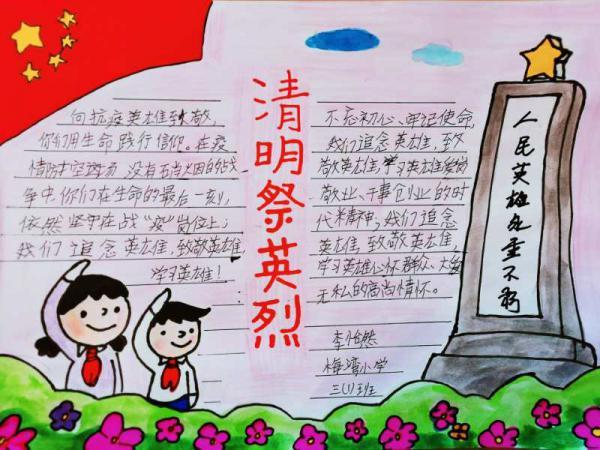 清明祭英烈
向抗疫英雄致敬,
你们用生命践行信仰。在疫
情防控战场 没有硝烟的战
争中,你们在生命的最后一刻,
依然坚守在战“疫”岗位上;
我们追念英雄,致敬英雄
学习英雄!
不忘初心、牢记使命,
我们追念英雄,致
敬英雄,学习英雄爱岗
敬业、干事创业的时
代精神,我们追念
英雄,致敬英雄,
学习英雄心怀群众、大爱
无私的高尚情怀。
李怡然
梅湾小学
三(1)班
人民英雄永垂不朽